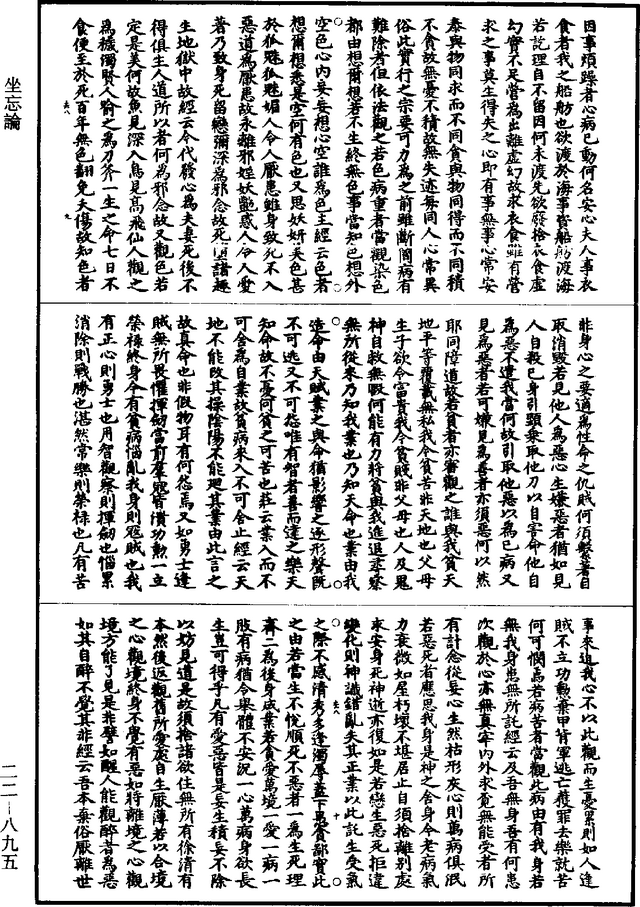 坐忘論
因事煩躁者心病已動何名安心夫人事衣
食者我之船舫也欲渡於海事資船舫渡海
若訖理自不留因何未渡先欲廢捨衣食虛
幻實不足營為出離虛幻故求衣食雖有營
求之事莫生得失之心即有事無事心常安
泰與物同求而不同貪與物同得而不同積
不貪故無憂不積故無失迹每同人心常異
俗此實行之宗要可力為之前雖斷簡病有
難除者但依法觀之若色病重者當觀染色
都由想爾想若不生終無色事當知色想外
空色心內妄妄想心空誰為色主經云色者
想爾想悉是空何有色也又思妖妍美色甚
於狐魅狐魅媚人令人厭患雖身致死不入
惡道為厭患故永離邪婬妖艷惑人令人愛
著乃致身死留戀彌深為邪念故死墮諸趣
生地獄中故經云今代發心為夫妻死後不
得俱生人道所以者何為邪念故又觀色若
定是美何故魚見深入鳥見高飛仙人觀之
為穢濁賢人喻之為刀斧一生之命七日不
食便至於死百年無色翻免夭傷故知色者
非身心之要適為性命之仇賊何須繫著自
取消毀若見他人為惡心生嫌惡者猶如見
人自殺己身引頸乘取他刀以自害命他自
為惡不遣我當何故引取他惡以為己病又
見為惡者若可嫌見為善者亦須惡何以然
耶同障道故若貧者亦審觀之誰與我貧天
地平等覆載無私我今貧苦非天地也父母
生子欲令富貴我今貧賤非父母也人及鬼
神自救無暇何能有力將貧與我進退尋察
無所從來乃知我業也乃知天命也業由我
造命由天賦業之與命猶影響之逐形聲既
不可逃又不可怨唯有智者善而達之樂天
知命故不憂何貧之可苦也莊云業入而不
可舍為自業故貧病來入不可舍止經云天
地不能改其操陰陽不能迴其業由此言之
故真命也非假物耳有何怨焉又如勇士逢
賊無所畏懼揮劒當前群寇皆潰功勳一立
榮祿終身今有貧病惱亂我身則寇賊也我
有正心則勇士也用智觀察則揮劒也惱累
消除則戰勝也湛然常樂則榮祿也凡有苦
事來迫我心不以此觀而生憂累則如人逢
賊不立功勳棄甲背軍逃亡獲罪去樂就苦
何可憫焉若病苦者當觀此病由有我身若
無我身患無所託經云及吾無身吾有何患
次觀於心亦無真宰內外求覓無能受者所
有計念從妄心生然枯形灰心則萬病俱泯
若惡死者應思我身是神之舍身今老病氣
力衰微如屋朽壞不堪居止自須捨離別處
求安身死神逝亦復如是若戀生惡死拒違
變化則神識錯亂失其正業以此託生受氣
之際不感清秀多逢濁辱蓋下愚貪鄙實此
之由若當生不悅順死不惡者一為生死理
齊二為後身成業若貪愛萬境一愛一病一
肢有病猶令舉體不安況一心萬病身欲長
生豈可得乎凡有愛惡皆是妄生積妄不除
以妨見道是故須捨諸欲住無所有徐清有
本然後返觀舊所愛處自生厭薄若以合境
之心觀境終身不覺有惡如將離境之心觀
境方能了見是非譬如醒人能觀醉者為惡
如其自醉不覺其非經云吾本棄俗厭離世
二二—八九五